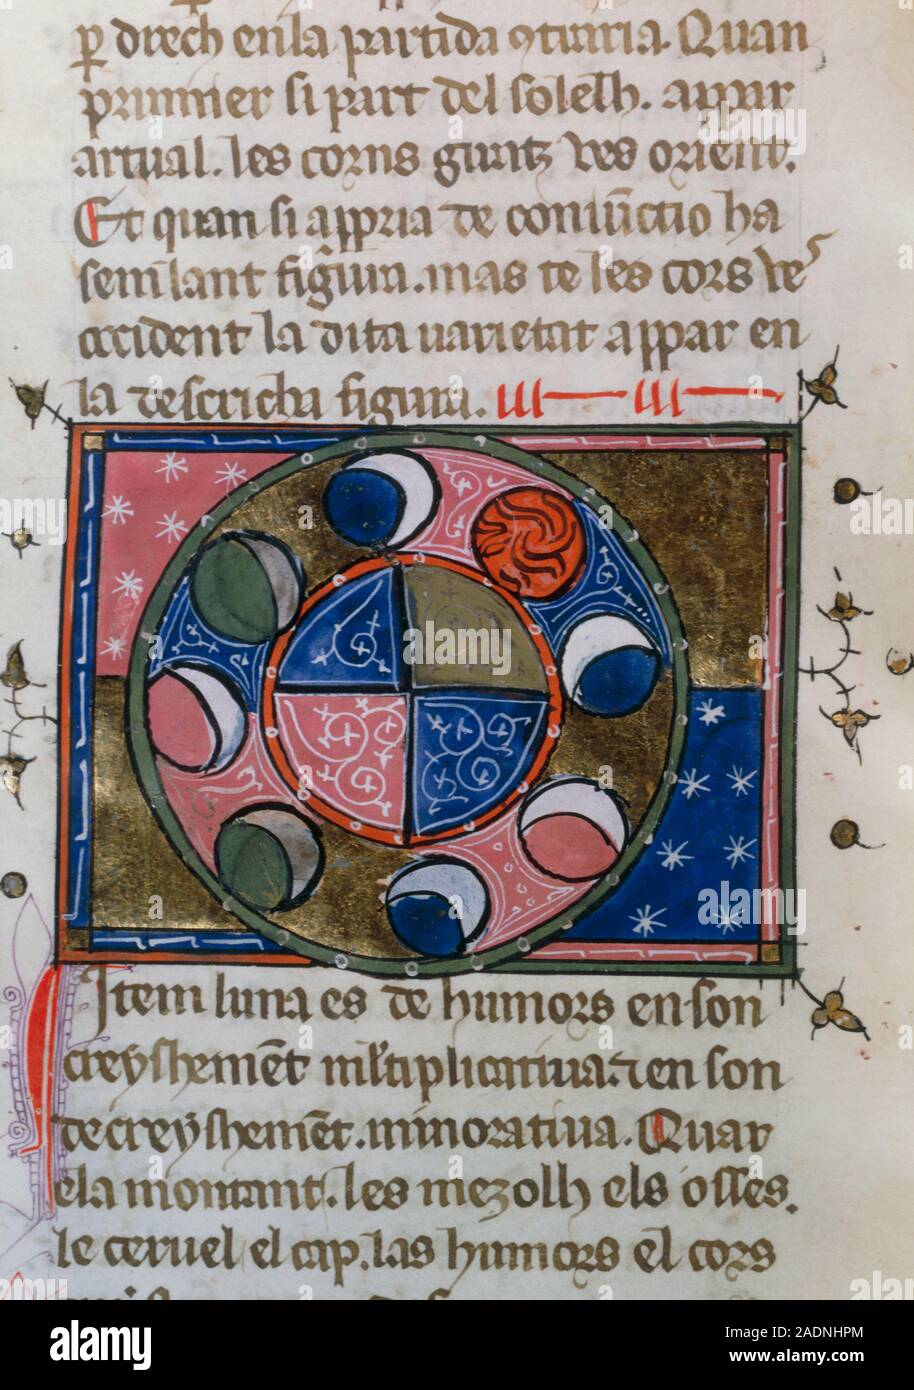 p drech en la partida ɔtraria. Quan
prumier si part del solelh. appar
artual. les corns guntz ves orient.
Et quan si appria de coniūctio ha
semlant figura. mas te les cors ves
occident la dita uarietat appar en
la descricha figura.
Item luna es de humors en son
creyshemēt mltiplicatiua. ⁊ en son
decreyshemēt. minoratiua. Quar
ela montant. les mezolh els osses.
le ceruel el cap. las humors el cors
alamy
Image ID: 2ADNHPM
www.alamy.com